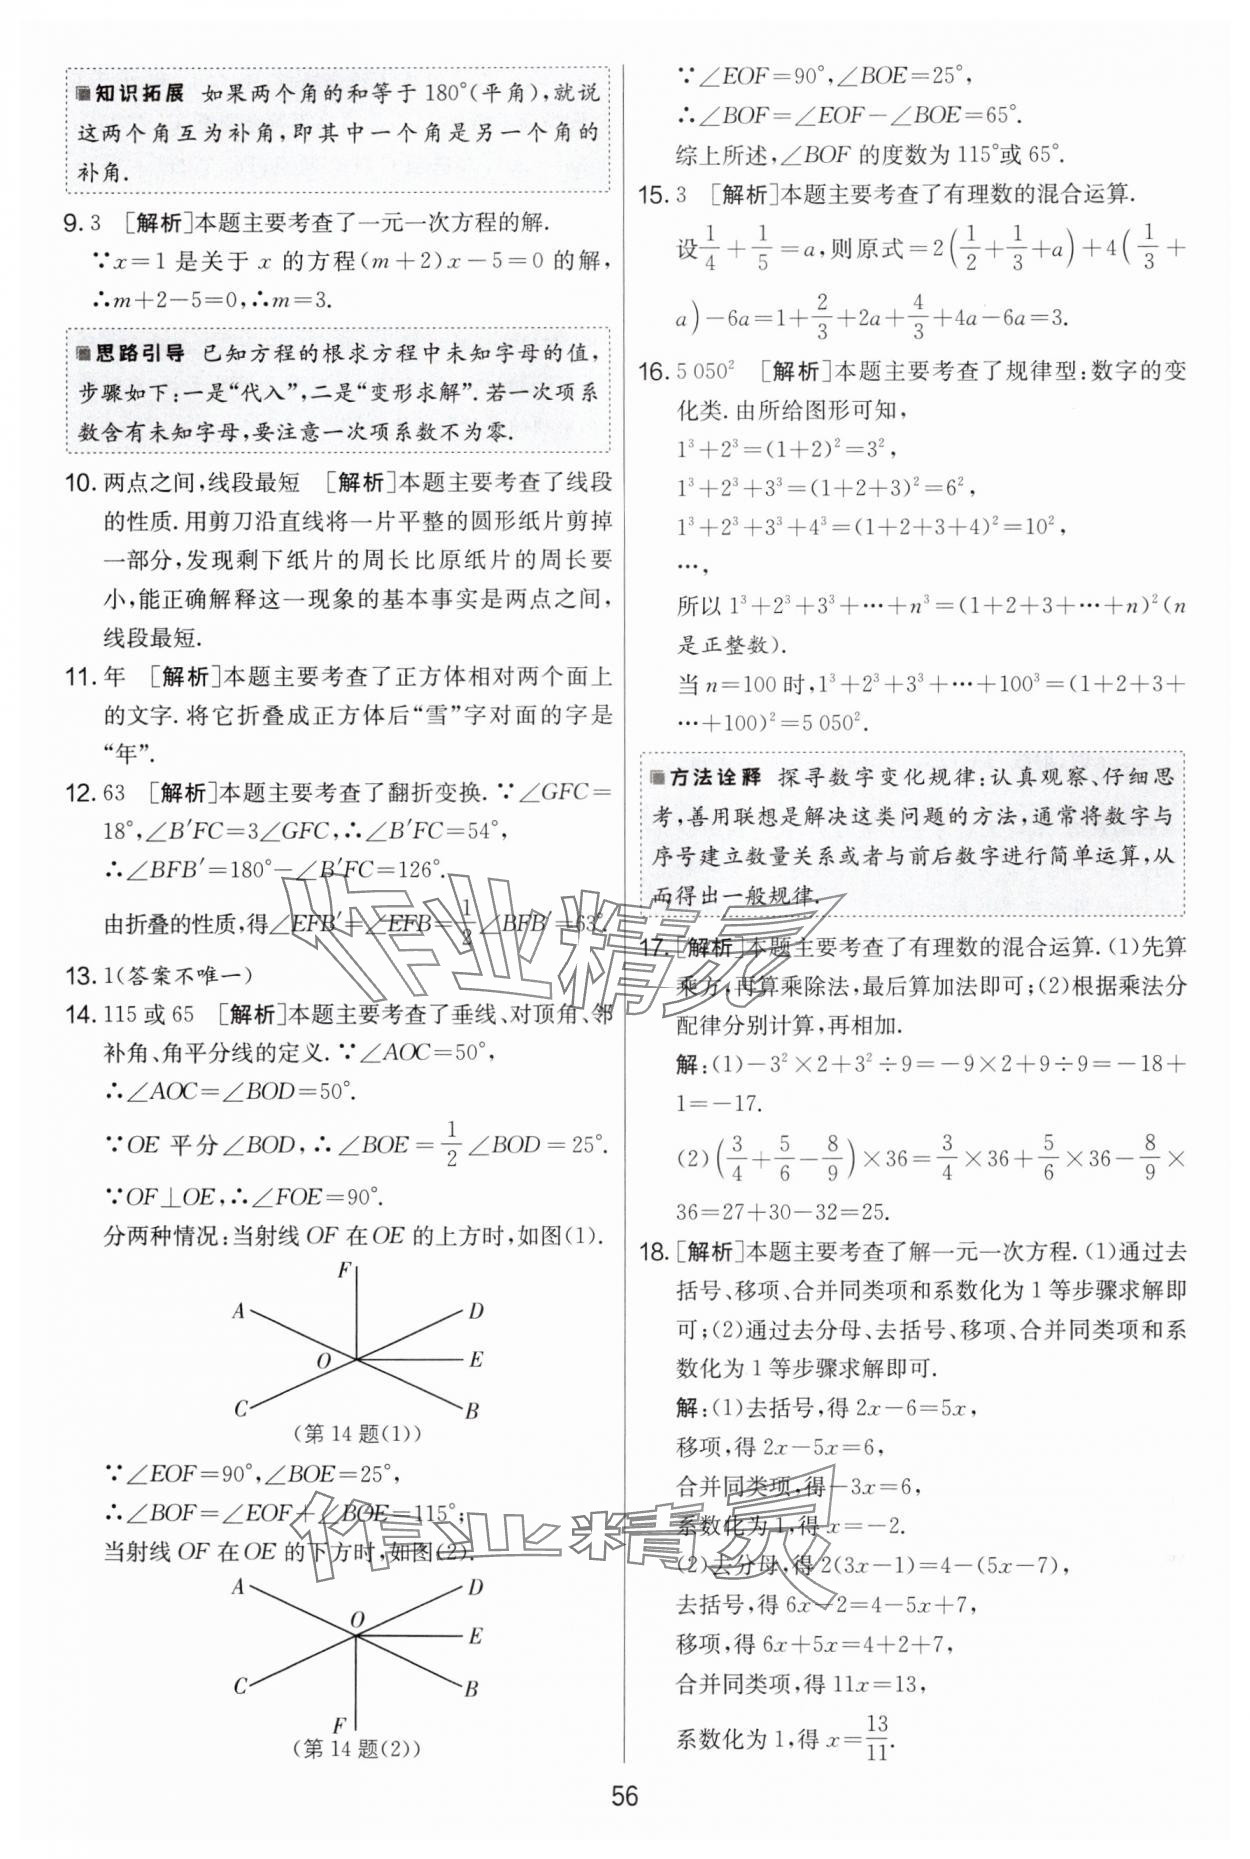 知识拓展 如果两个角的和等于180°(平角),就说
这两个角互为补角,即其中一个角是另一个角的
补角.
9. 3 [解析]本题主要考查了一元一次方程的解.
∵x=1是关于x的方程(m+2)x-5=0的解,
∴m+2-5=0,∴m=3.
思路引导 已知方程的根求方程中未知字母的值,
步骤如下:一是“代入”,二是“变形求解”.若一次项系
数含有未知字母,要注意一次项系数不为零.
10. 两点之间,线段最短 [解析]本题主要考查了线段
的性质.用剪刀沿直线将一片平整的圆形纸片剪掉
一部分,发现剩下纸片的周长比原纸片的周长要
小,能正确解释这一现象的基本事实是两点之间,
线段最短.
11. 年 [解析]本题主要考查了正方体相对两个面上
的文字.将它折叠成正方体后“雪”字对面的字是
“年”.
12. 63 [解析]本题主要考查了翻折变换.∵∠GFC=
18°,∠B′FC=3∠GFC,∴∠B′FC=54°,
∴∠BFB′=180°-∠B′FC=126°.
由折叠的性质,得∠EFB′=∠EFB=1/2∠BFB′=63°.
13. 1(答案不唯一)
14. 115或65 [解析]本题主要考查了垂线、对顶角、邻
补角、角平分线的定义.∵∠AOC=50°,
∴∠AOC=∠BOD=50°.
∵OE平分∠BOD,∴∠BOE=1/2∠BOD=25°.
∵OF⊥OE,∴∠FOE=90°.
分两种情况:当射线OF在OE的上方时,如图(1).
F
A D
O E
C B
(第14题(1))
∵∠EOF=90°,∠BOE=25°,
∴∠BOF=∠EOF+∠BOE=115°;
当射线OF在OE的下方时,如图(2).
A D
O E
C B
F
(第14题(2))
∵∠EOF=90°,∠BOE=25°,
∴∠BOF=∠EOF-∠BOE=65°.
综上所述,∠BOF的度数为115°或65°.
15. 3 [解析]本题主要考查了有理数的混合运算.
设1/4+1/5=a,则原式=2(1/2+1/3+a)+4(1/3+
a)-6a=1+2/3+2a+4/3+4a-6a=3.
16. 5 050² [解析]本题主要考查了规律型:数字的变
化类.由所给图形可知,
1³+2³=(1+2)²=3²,
1³+2³+3³=(1+2+3)²=6²,
1³+2³+3³+4³=(1+2+3+4)²=10²,
…,
所以1³+2³+3³+…+n³=(1+2+3+…+n)²(n
是正整数).
当n=100时,1³+2³+3³+…+100³=(1+2+3+
…+100)²=5 050².
方法诠释 探寻数字变化规律:认真观察、仔细思
考,善用联想是解决这类问题的方法,通常将数字与
序号建立数量关系或者与前后数字进行简单运算,从
而得出一般规律.
17. [解析]本题主要考查了有理数的混合运算.(1)先算
乘方,再算乘除法,最后算加法即可;(2)根据乘法分
配律分别计算,再相加.
解:(1)-3²×2+3²÷9=-9×2+9÷9=-18+
1=-17.
(2)(3/4+5/6-8/9)×36=3/4×36+5/6×36-8/9×
36=27+30-32=25.
18. [解析]本题主要考查了解一元一次方程.(1)通过去
括号、移项、合并同类项和系数化为1等步骤求解即
可;(2)通过去分母、去括号、移项、合并同类项和系
数化为1等步骤求解即可.
解:(1)去括号,得2x-6=5x,
移项,得2x-5x=6,
合并同类项,得-3x=6,
系数化为1,得x=-2.
(2)去分母,得2(3x-1)=4-(5x-7),
去括号,得6x-2=4-5x+7,
移项,得6x+5x=4+2+7,
合并同类项,得11x=13,
系数化为1,得x=13/11.
56
作业精灵
作业精灵